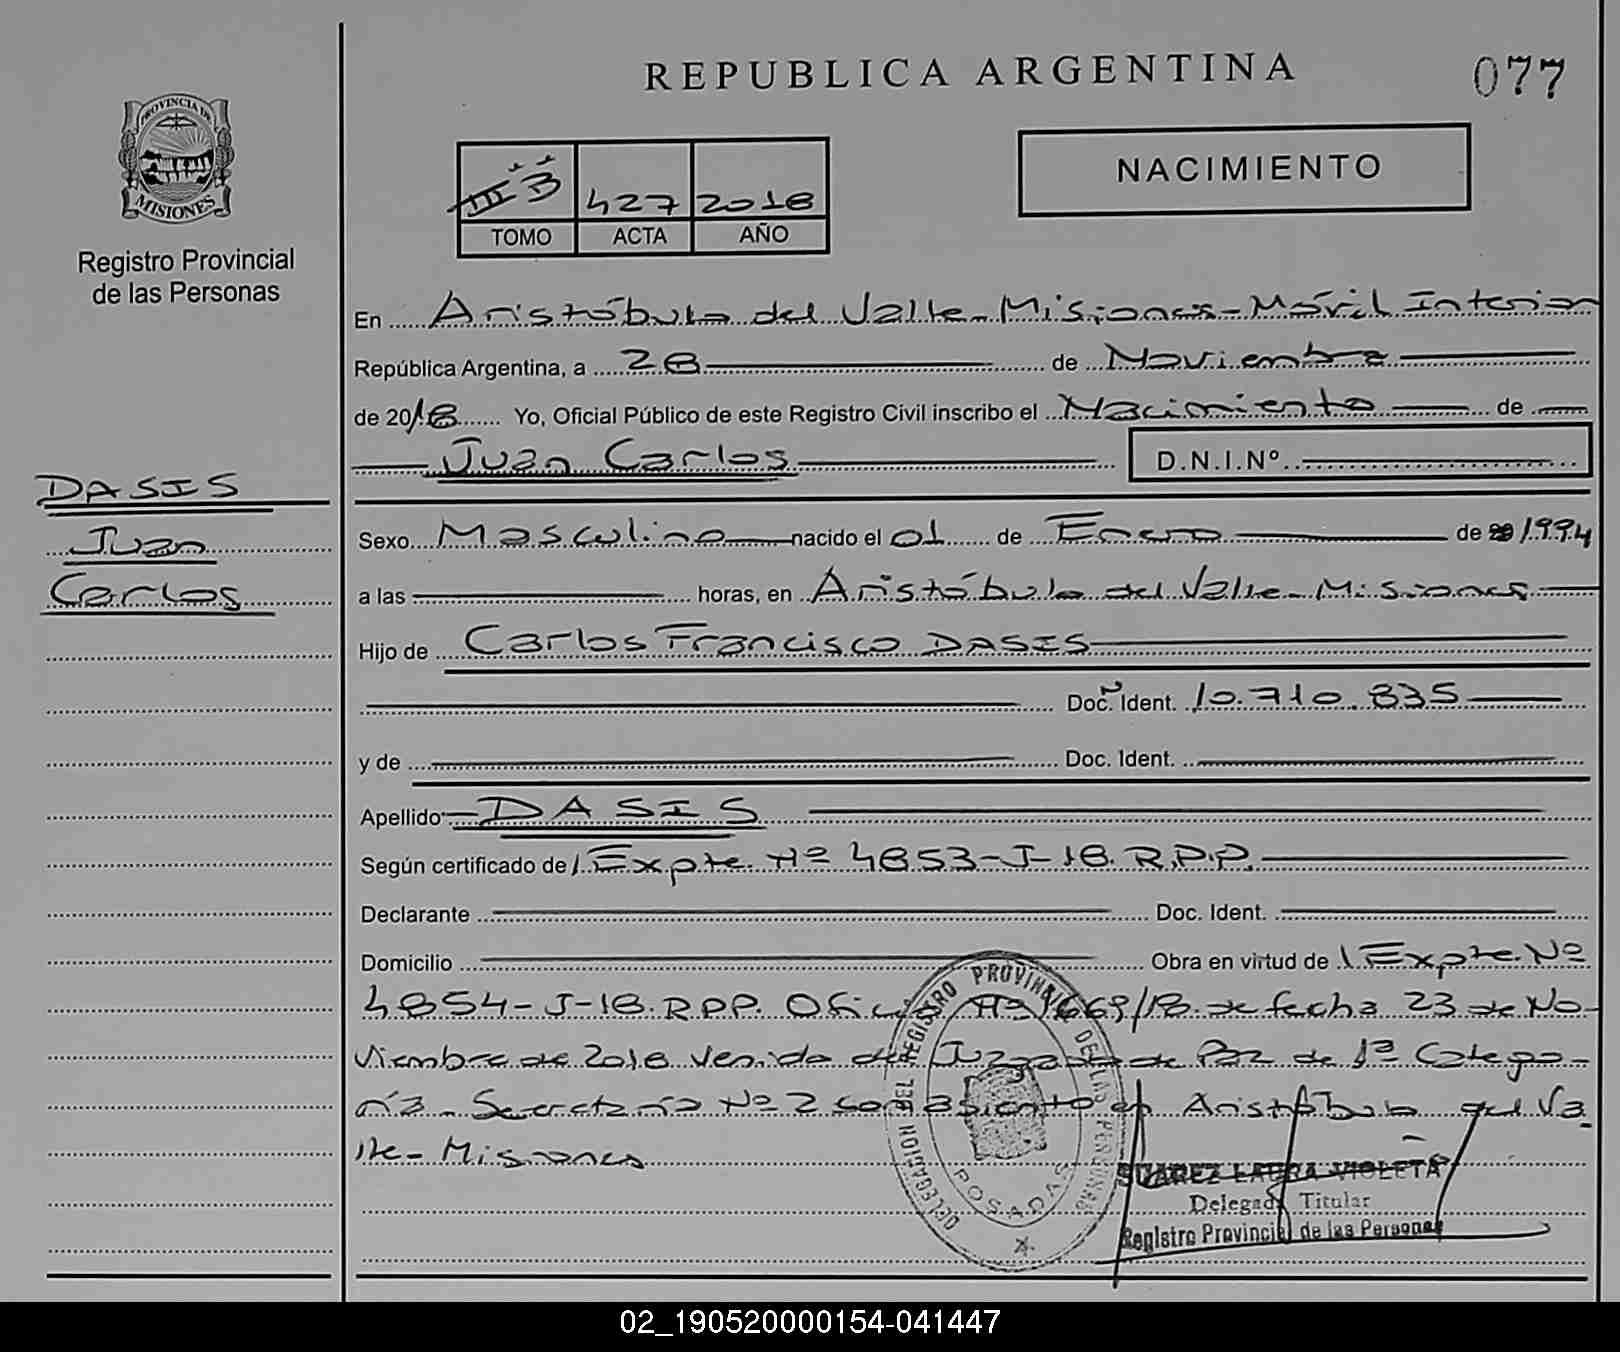 REPUBLICA ARGENTINA
077
PROVINCIA DE
MISIONES
Registro Provincial
de las Personas
III B
427
2018
TOMO
ACTA
AÑO
NACIMIENTO
En Aristóbulo del Valle - Misiones - Móvil Interior
República Argentina, a 28 de Noviembre
de 2018 Yo, Oficial Público de este Registro Civil inscribo el Nacimiento de
Juan Carlos
D.N.I.Nº
DASIS
Juan
Carlos
Sexo Masculino nacido el 01 de Enero de 1994
a las horas, en Aristóbulo del Valle - Misiones
Hijo de Carlos Francisco DASIS
Doc. Ident. 10.710.835
y de Doc. Ident.
Apellido DASIS
Según certificado de Expte. Nº 4853-J-18. R.P.P.
Declarante Doc. Ident.
Domicilio Obra en virtud de Expte. Nº
4854-J-18. R.P.P. Oficio Nº 1669/18. de fecha 23 de No-
viembre de 2018 venido del Juzgado de Paz de 1ª Catego-
ría - Secretaría Nº 2 con asiento en Aristóbulo del Va
lle - Misiones
DELEGACION DEL REGISTRO PROVINCIAL DE LAS PERSONAS
POSADAS
SUAREZ LAURA VIOLETA
Delegada Titular
Registro Provincial de las Personas
02_190520000154-041447